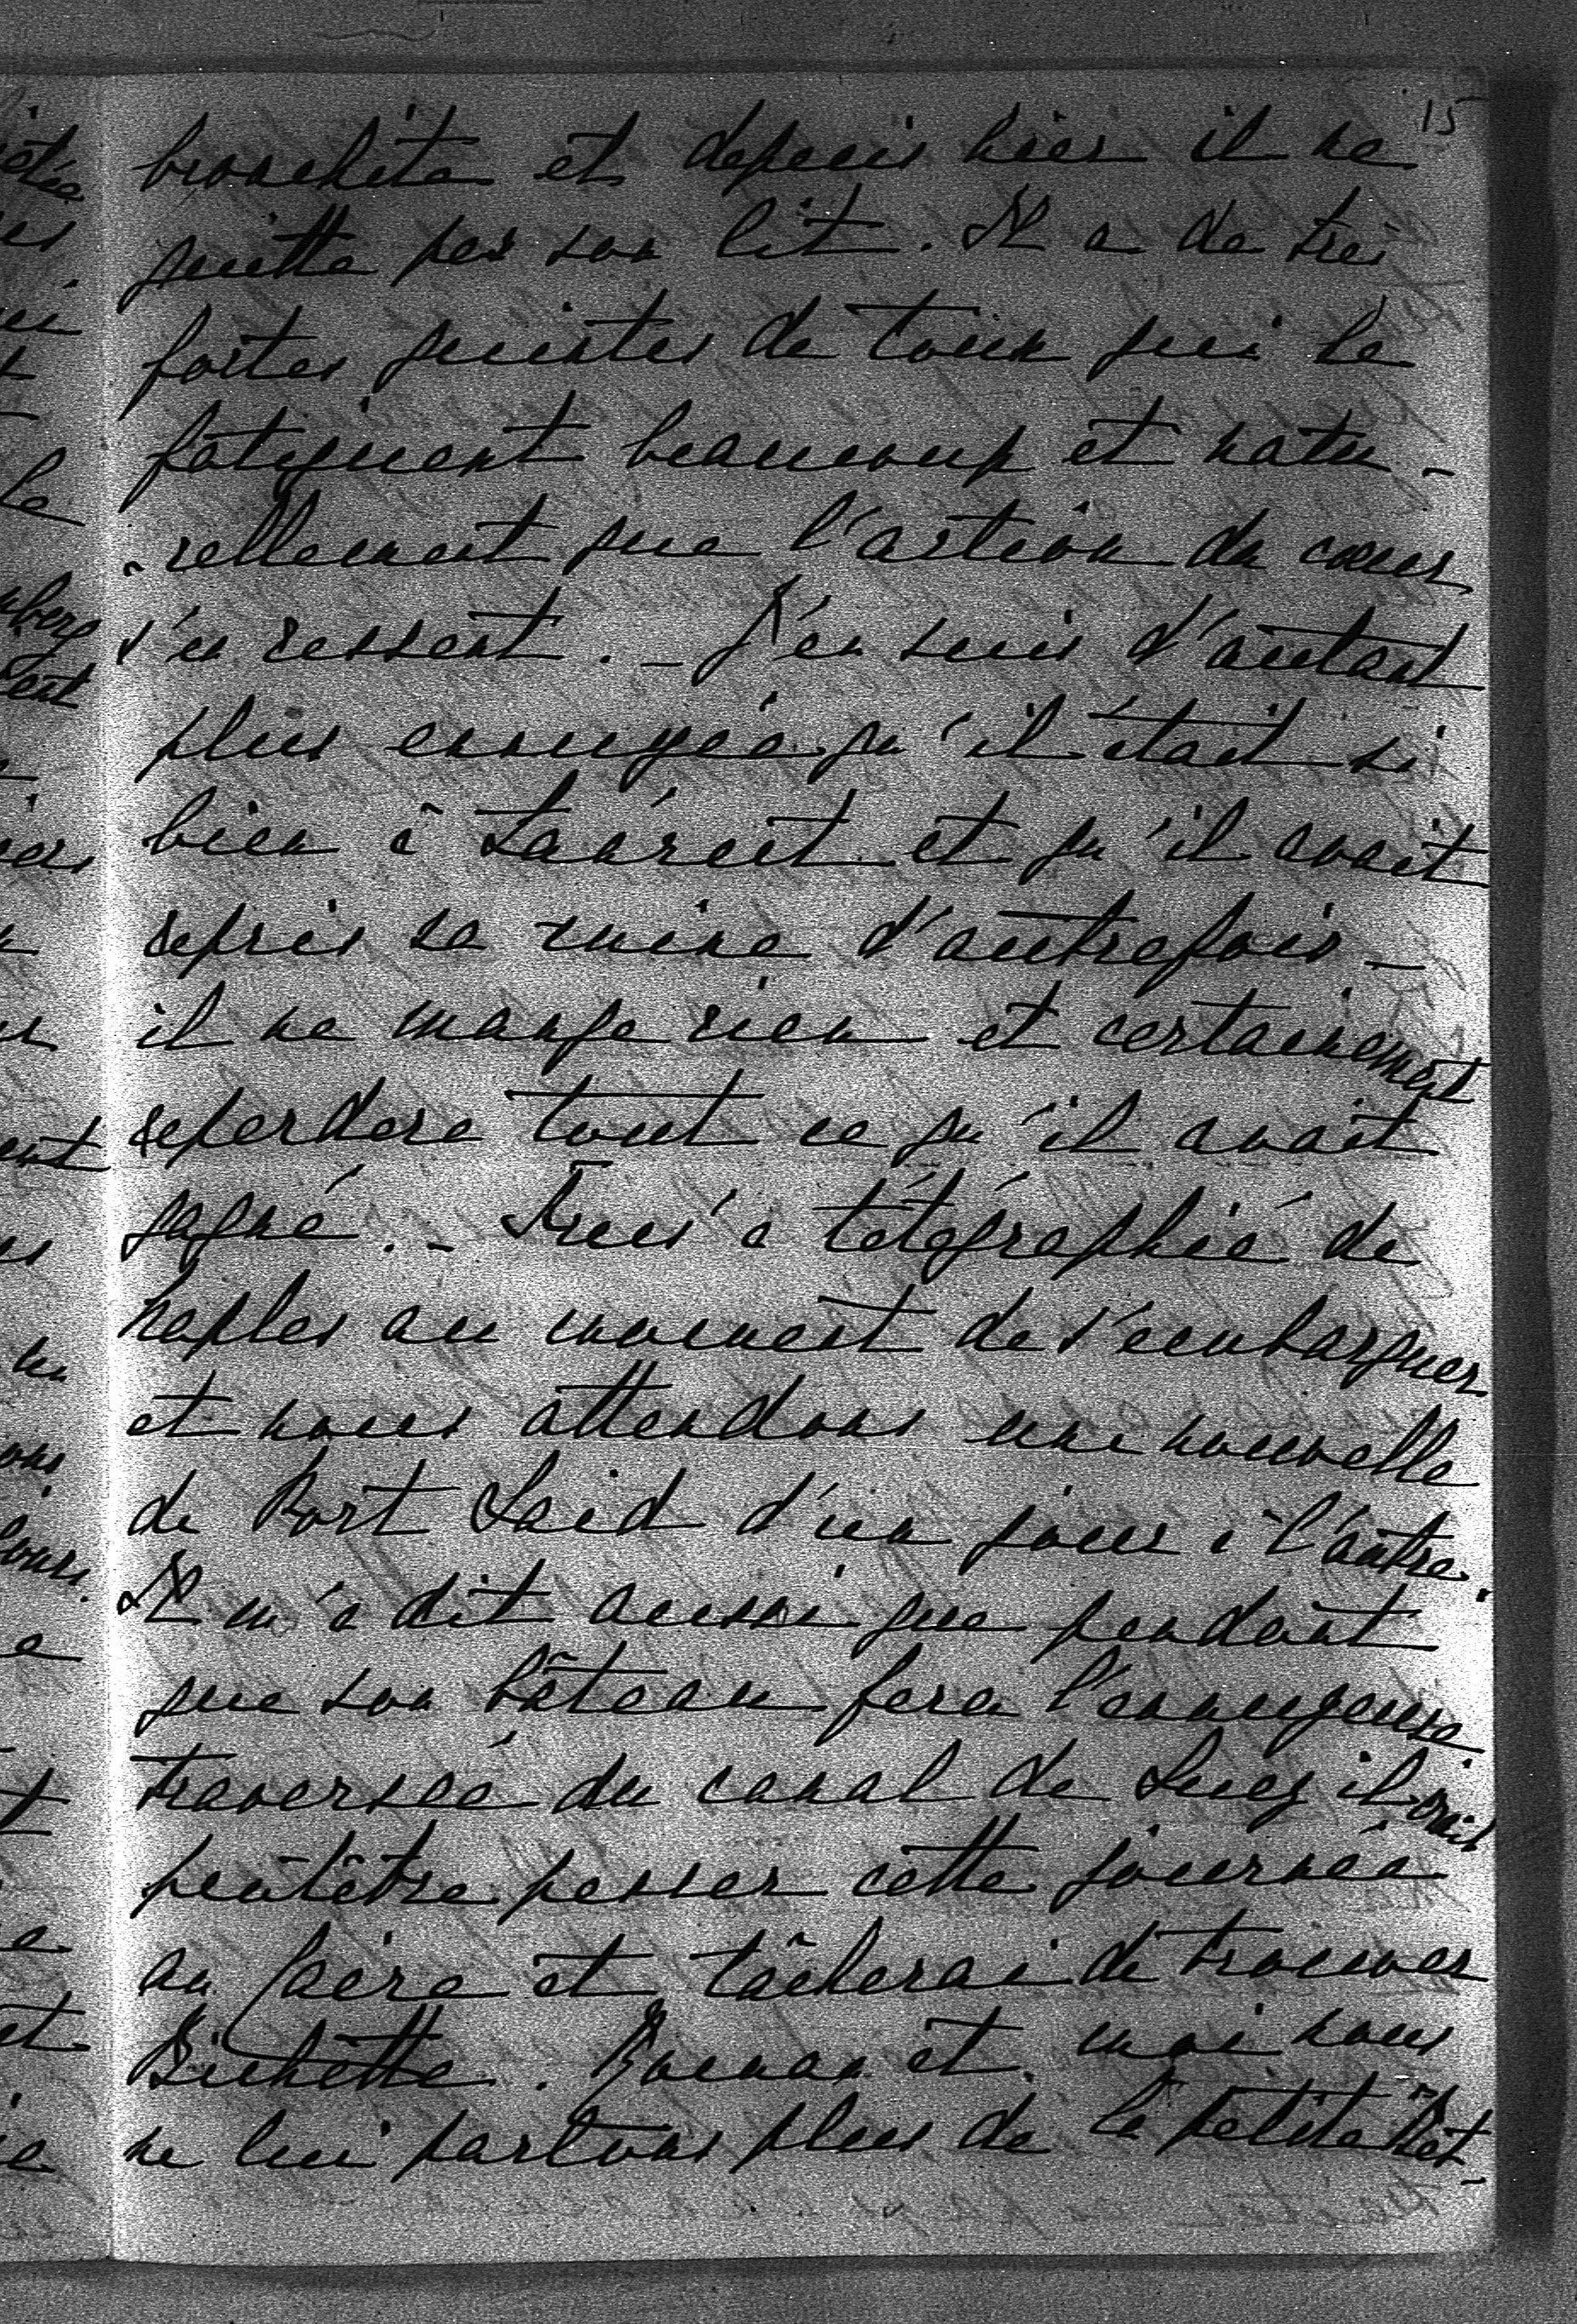 15
bronchite et depuis hier il ne
quitte pas son lit. Il a de très
fortes quintes de toux qui le
fatiguent beaucoup et natu-
-rellement que l'action du coeur
s'en ressent. - J'en suis d'autant
plus ennuyée qu'il était si
bien à et qu'il avait
repris sa mine d'autrefois -
il ne mange rien et certainement
reperdera tout ce qu'il avait
gagné. - a télégraphié de
Naples au moment de s'embarquer
et nous attendons une nouvelle
de Port Said d'un jour à l'autre.
Il m'a dit aussi que pendant
que son bâteau fera l'ennuyeuse
traversée du canal de Suez il irait
peutêtre passer cette journée
au Caire et tâcherai de trouver
Bichette. et moi nous
ne lui parlons plus de la petite